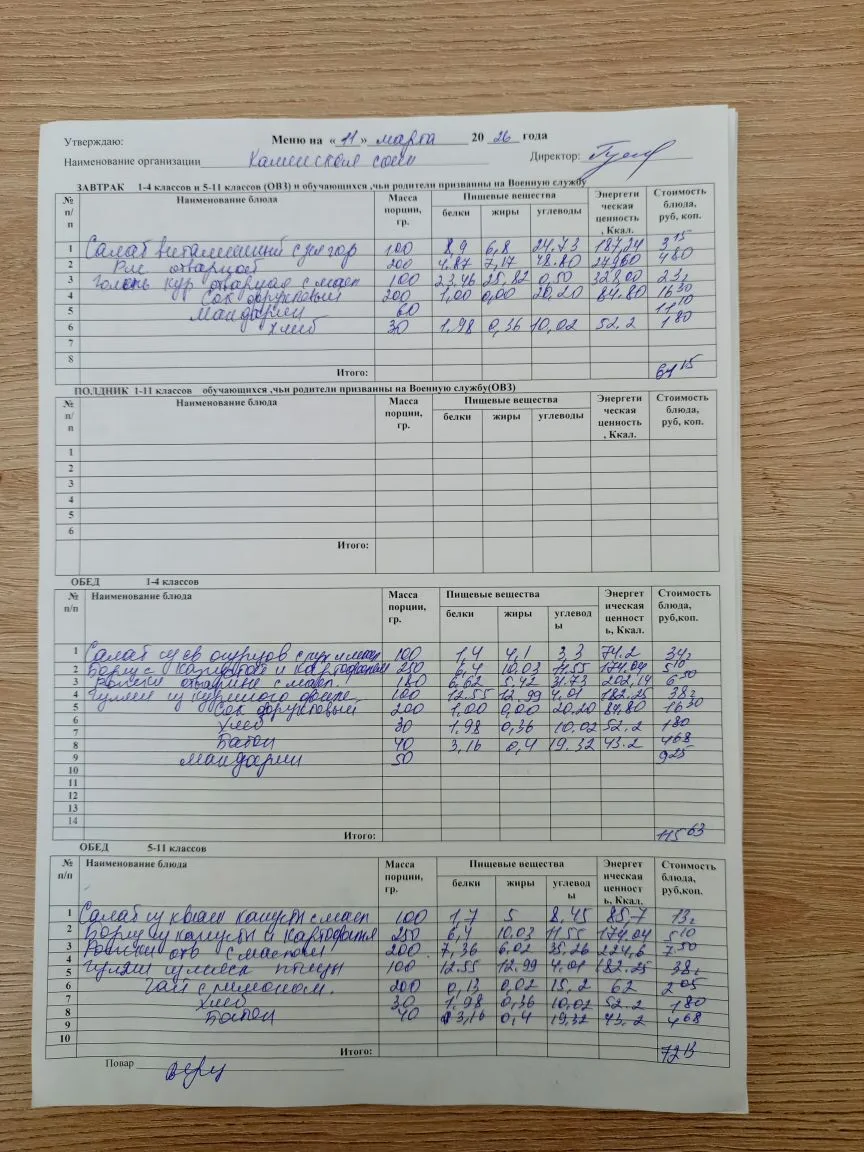 Утверждаю: Меню на « 11 » марта 20 26 года
Наименование организации Каминская сош Директор:
ЗАВТРАК 1-4 классов и 5-11 классов (ОВЗ) и обучающихся ,чьи родители призванны на Военную службу
№ п/п Наименование блюда Масса порции, гр. Пищевые вещества Энергети ческая ценность , Ккал. Стоимость блюда, руб, коп.
белки жиры углеводы
1 Салат витаминный 100 8,9 6,8 24.73 187,24 3 15
2 Рис отварной 200 4.87 7,17 48.80 279,60 4 80
3 Голень кур отварная с масл 100 23,46 25,82 0,50 328,00 23,
4 Сок фруктовый 200 1,00 0,00 20,20 84.80 16 30
5 Мандарин 60 11 10
6 Хлеб 30 1,98 0,36 10,02 52.2 1 80
7
8
Итого: 61 15
ПОЛДНИК 1-11 классов обучающихся ,чьи родители призванны на Военную службу(ОВЗ)
№ п/п Наименование блюда Масса порции, гр. Пищевые вещества Энергети ческая ценность , Ккал. Стоимость блюда, руб, коп.
белки жиры углеводы
1
2
3
4
5
6
Итого:
ОБЕД 1-4 классов
№ п/п Наименование блюда Масса порции, гр. Пищевые вещества Энергет ическая ценност ь, Ккал. Стоимость блюда, руб,коп.
белки жиры углевод ы
1 Салат из св огурцов с 100 1,4 4,1 3,3 74.2 34,
2 Борщ с капустой и картофелем 250 6,4 10.03 11.55 174,04 5 10
3 Рожки отварные с масл 180 6,62 5,42 31.73 202,14 6 50
4 Гуляш из куриного филе 100 12.55 12,99 4,01 182.25 38,
5 Сок фруктовый 200 1,00 0,00 20,20 84,80 16 30
6 Хлеб 30 1,98 0,36 10,02 52.2 1 80
7 Батон 40 3,16 0,4 19.32 43.2 4 68
8 Мандарин 50 9 25
9
10
11
12
13
14
Итого: 115 63
ОБЕД 5-11 классов
№ п/п Наименование блюда Масса порции, гр. Пищевые вещества Энергет ическая ценност ь, Ккал. Стоимость блюда, руб,коп.
белки жиры углевод ы
1 Салат из кваш капусты с масл 100 1,7 5 8,45 85,7 13,
2 Борщ из капусты и картофеля 250 6,4 10.03 11.55 174,04 5 10
3 Рожки отв с маслом 200 7,36 6,02 35,26 224,6 7 50
4 Гуляш из мяса птицы 100 12.55 12,99 4,01 182.25 38,
5 Чай с лимоном. 200 0,13 0,02 15,2 62 2 05
6 Хлеб 30 1,98 0,36 10,02 52.2 1 80
7 Батон 40 3,16 0,4 19,32 43.2 4 68
8
9
10
Итого: 72 13
Повар